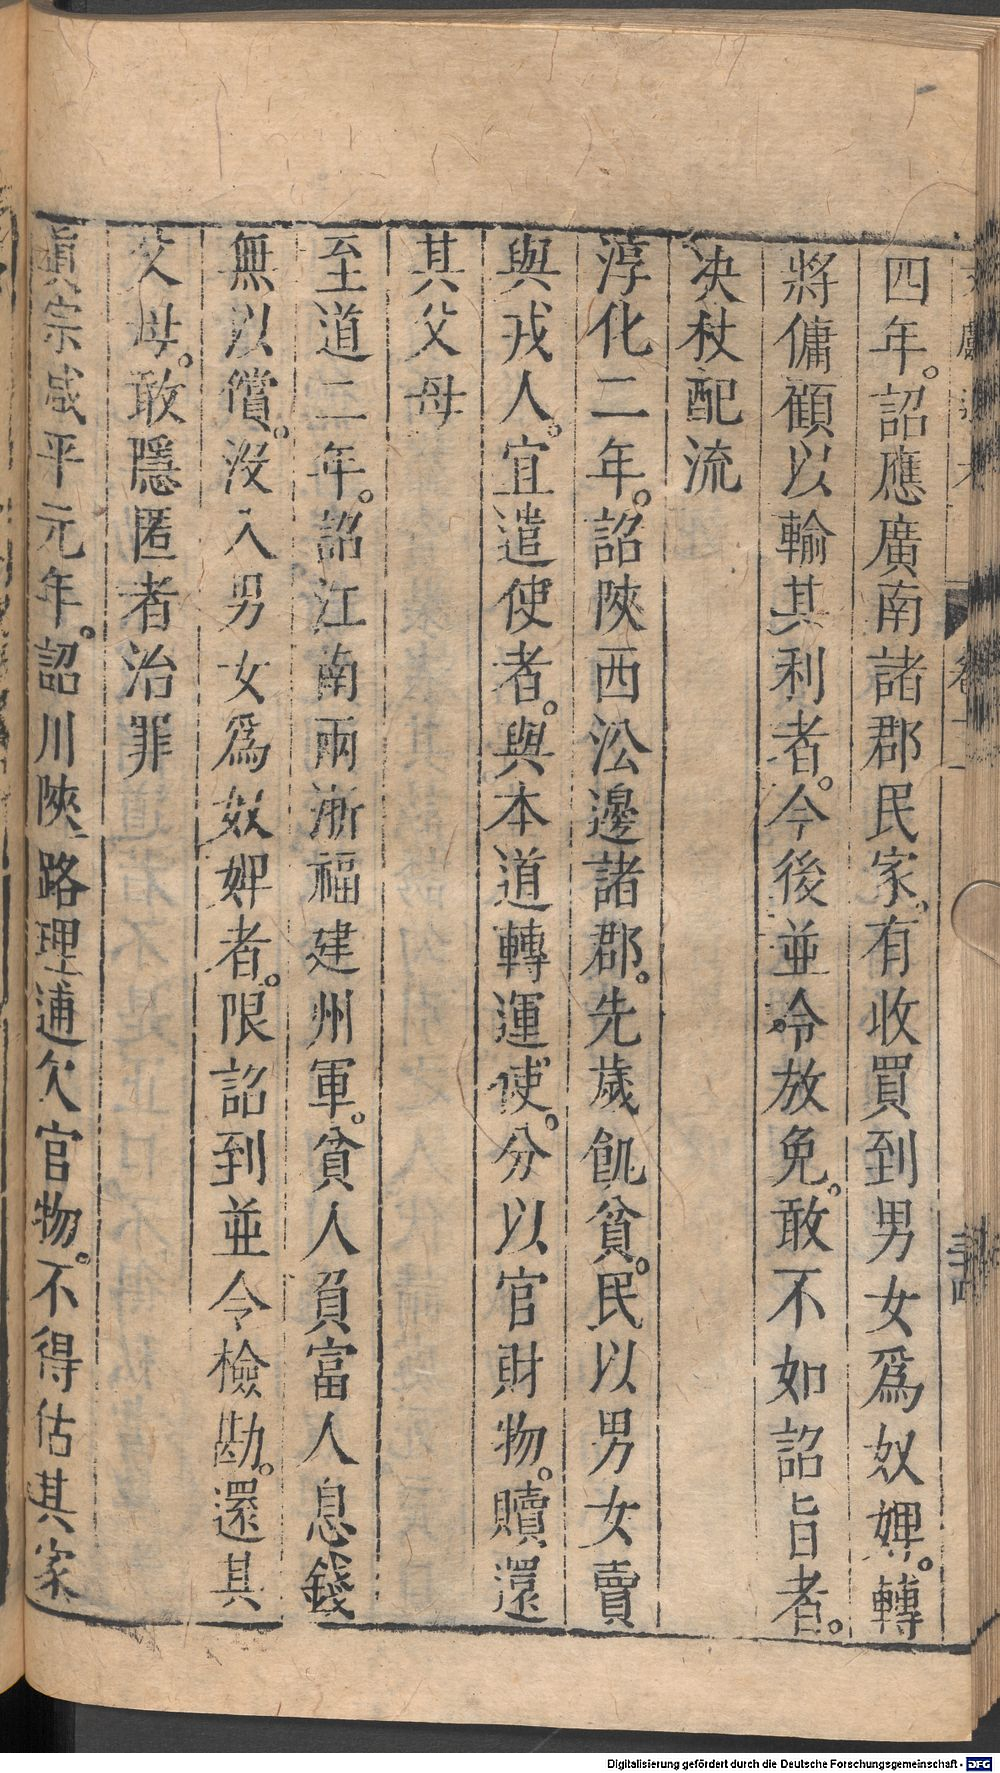 四年。詔應廣南諸郡民家。有收買到男女爲奴婢。轉
將傭顧以輸其利者。今後並令放免。敢不如詔旨者。
决杖配流
淳化二年。詔陝西沿邊諸郡。先歲飢貧。民以男女賣
與戎人。宜遣使者。與本道轉運使。分以官財物。贖還
其父母
至道二年。詔江南兩浙福建州軍。貧人負富人息錢
無以償。沒入男女爲奴婢者。限詔到並令檢勘。還其
父母。敢隱匿者治罪
眞宗咸平元年。詔川陝路理逋欠官物。不得估其家
Digitalisierung gefördert durch die Deutsche Forschungsgemeinschaft - DFG